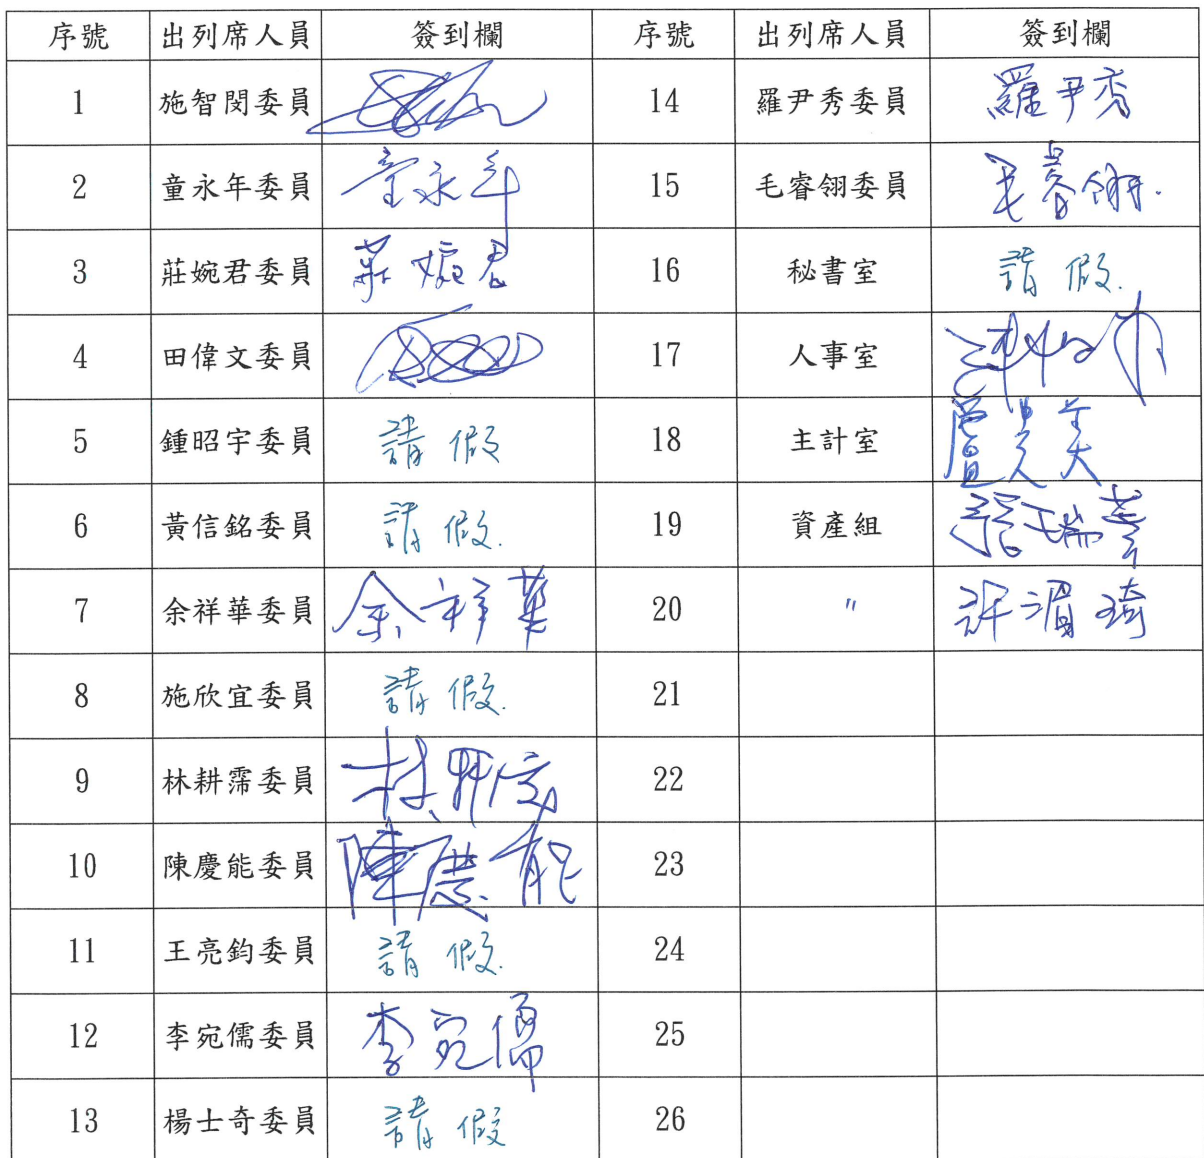 序號 出列席人員 簽到欄 序號 出列席人員 簽到欄
1 施智閔委員 14 羅尹秀委員 羅尹秀
2 童永年委員 童永年 15 毛睿翎委員 毛睿翎.
3 莊婉君委員 莊婉君 16 秘書室 請假.
4 田偉文委員 17 人事室
5 鍾昭宇委員 請假 18 主計室
6 黃信銘委員 請假. 19 資產組
7 余祥華委員 余祥華 20 〃 許湄琦
8 施欣宜委員 請假. 21
9 林耕霈委員 林耕霈 22
10 陳慶能委員 陳慶能 23
11 王亮鈞委員 請假. 24
12 李宛儒委員 李宛儒 25
13 楊士奇委員 請假 26